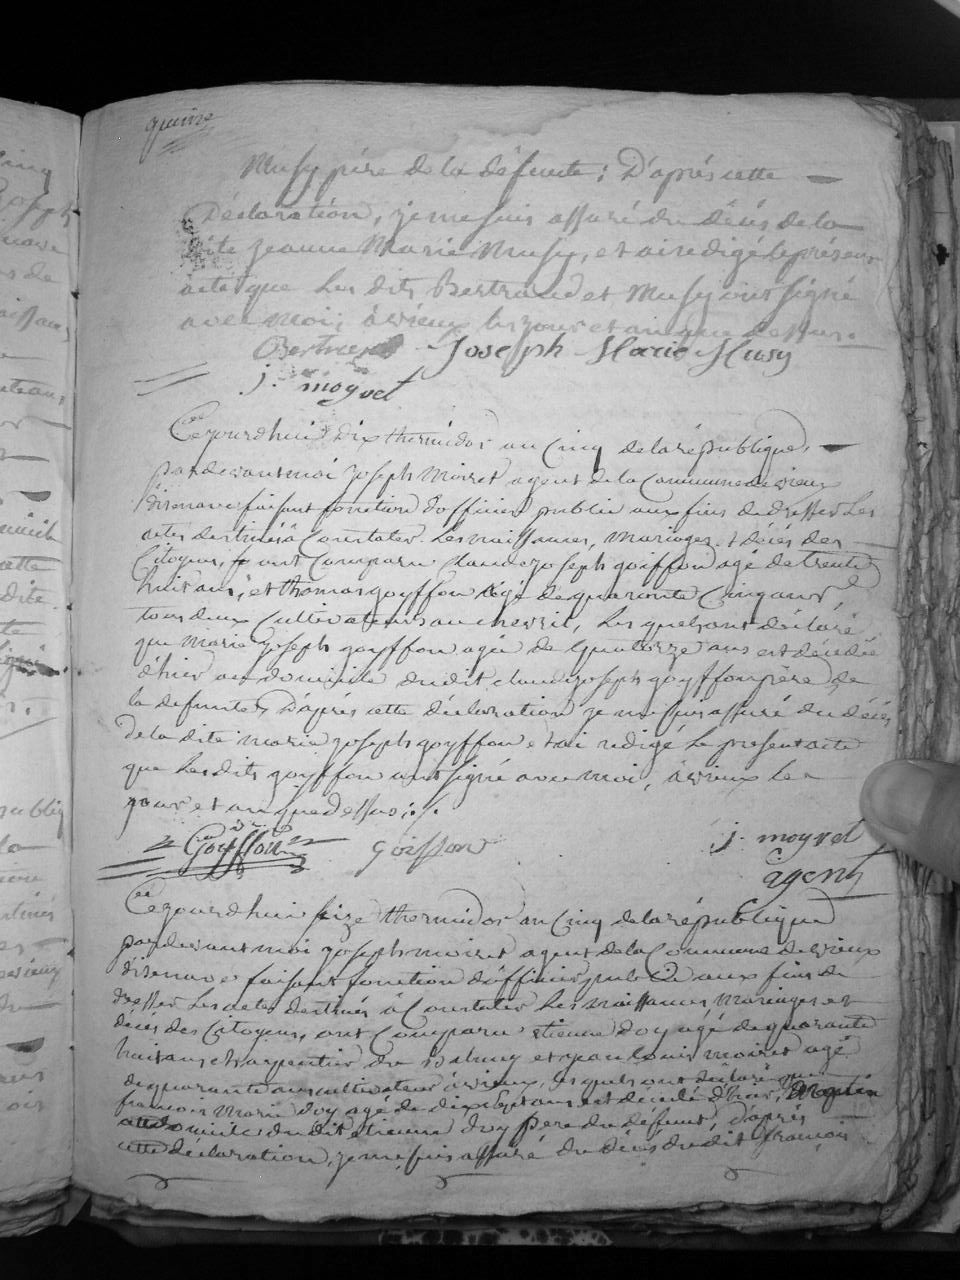 quinze
Musy père de la défunte; D'après cette
Déclaration, je me suis assuré du décès de la
dite jeanne Marie Musy, et ai redigé le présent
acte que les dits Bertrand et Musy ont signé
avec moi; à vieux les jour et an que dessus.
Bertrand Joseph Marie Musy
j. moyret
Cejourdhui dix thermidor an Cinq de la république,
pardevant moi joseph moiret agent de la Commune de vieux
disenave faisant fonction d'officier public aux fins de dresser les
actes destinés à Constater les naissances, mariages et décès des
Citoyens, ont Comparu Claude joseph goiffon agé de trente
huit ans, et thomas goyffon agé de quarante Cinq ans
tous deux Cultivateurs au chevril, les quels ont déclaré
que marie joseph goyffon agée de quatorze ans est décédée
d'hier au domicile du dit claude joseph goyffon père de
la defunte, D'après cette déclaration je me suis assuré du décès
de la dite marie joseph goyffon et ai redigé le present acte
que les dits goyffon ont signé avec moi, à vieux les
jour et an que dessus./.
Goyffon goiffon j. moyret
agent
Cejourdhui seize thermidor an Cinq de la république
pardevant moi joseph moiret agent de la Commune de vieux
disenave faisant fonction d'officier public aux fins de
dresser les actes destinés à Constater les naissances mariages et
décès des Citoyens, ont Comparu etienne doy agé de quarante
huit ans charpentier de et jean louis moiret agé
de quarante ans cultivateur à vieux, les quels ont déclaré que
françois marie doy agé de dix sept ans est décédé d'hier,
au domicile du dit etienne doy père du défunt, d'après
cette déclaration, je me suis assuré du décès du dit françois